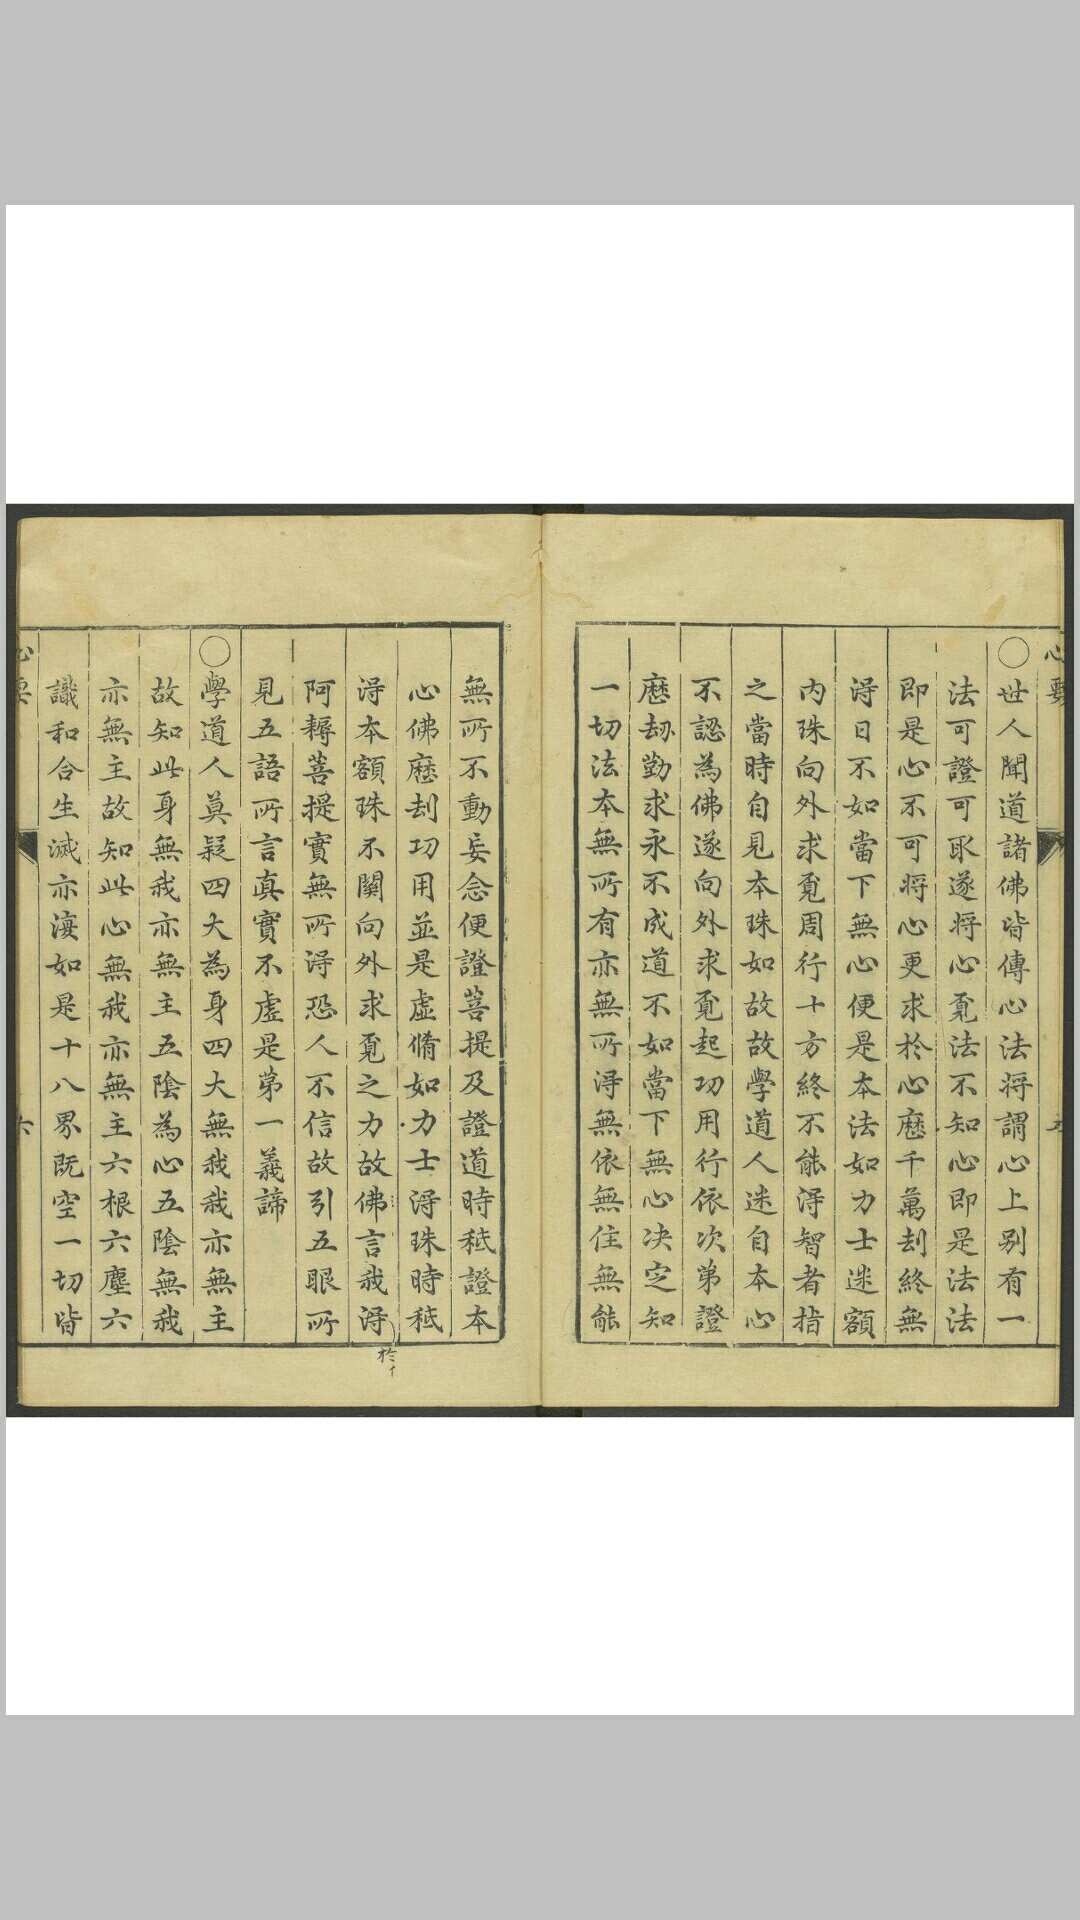 心要
○世人聞道諸佛皆傳心法將謂心上別有一
法可證可取遂將心覓法不知心即是法法
即是心不可將心更求於心歷千萬劫終無
得日不如當下無心便是本法如力士迷額
內珠向外求覓周行十方終不能得智者指
之當時自見本珠如故故學道人迷自本心
不認為佛遂向外求覓起功用行依次第證
歷劫勤求永不成道不如當下無心决定知
一切法本無所有亦無所得無依無住無能
無所不動妄念便證菩提及證道時秪證本
心佛歷劫功用並是虛脩如力士得珠時秪
得本額珠不關向外求覓之力故佛言我得
於
阿耨菩提實無所得恐人不信故引五眼所
見五語所言真實不虛是第一義諦
○學道人莫疑四大為身四大無我我亦無主
故知此身無我亦無主五陰為心五陰無我
亦無主故知此心無我亦無主六根六塵六
識和合生滅亦復如是十八界既空一切皆
心要
六